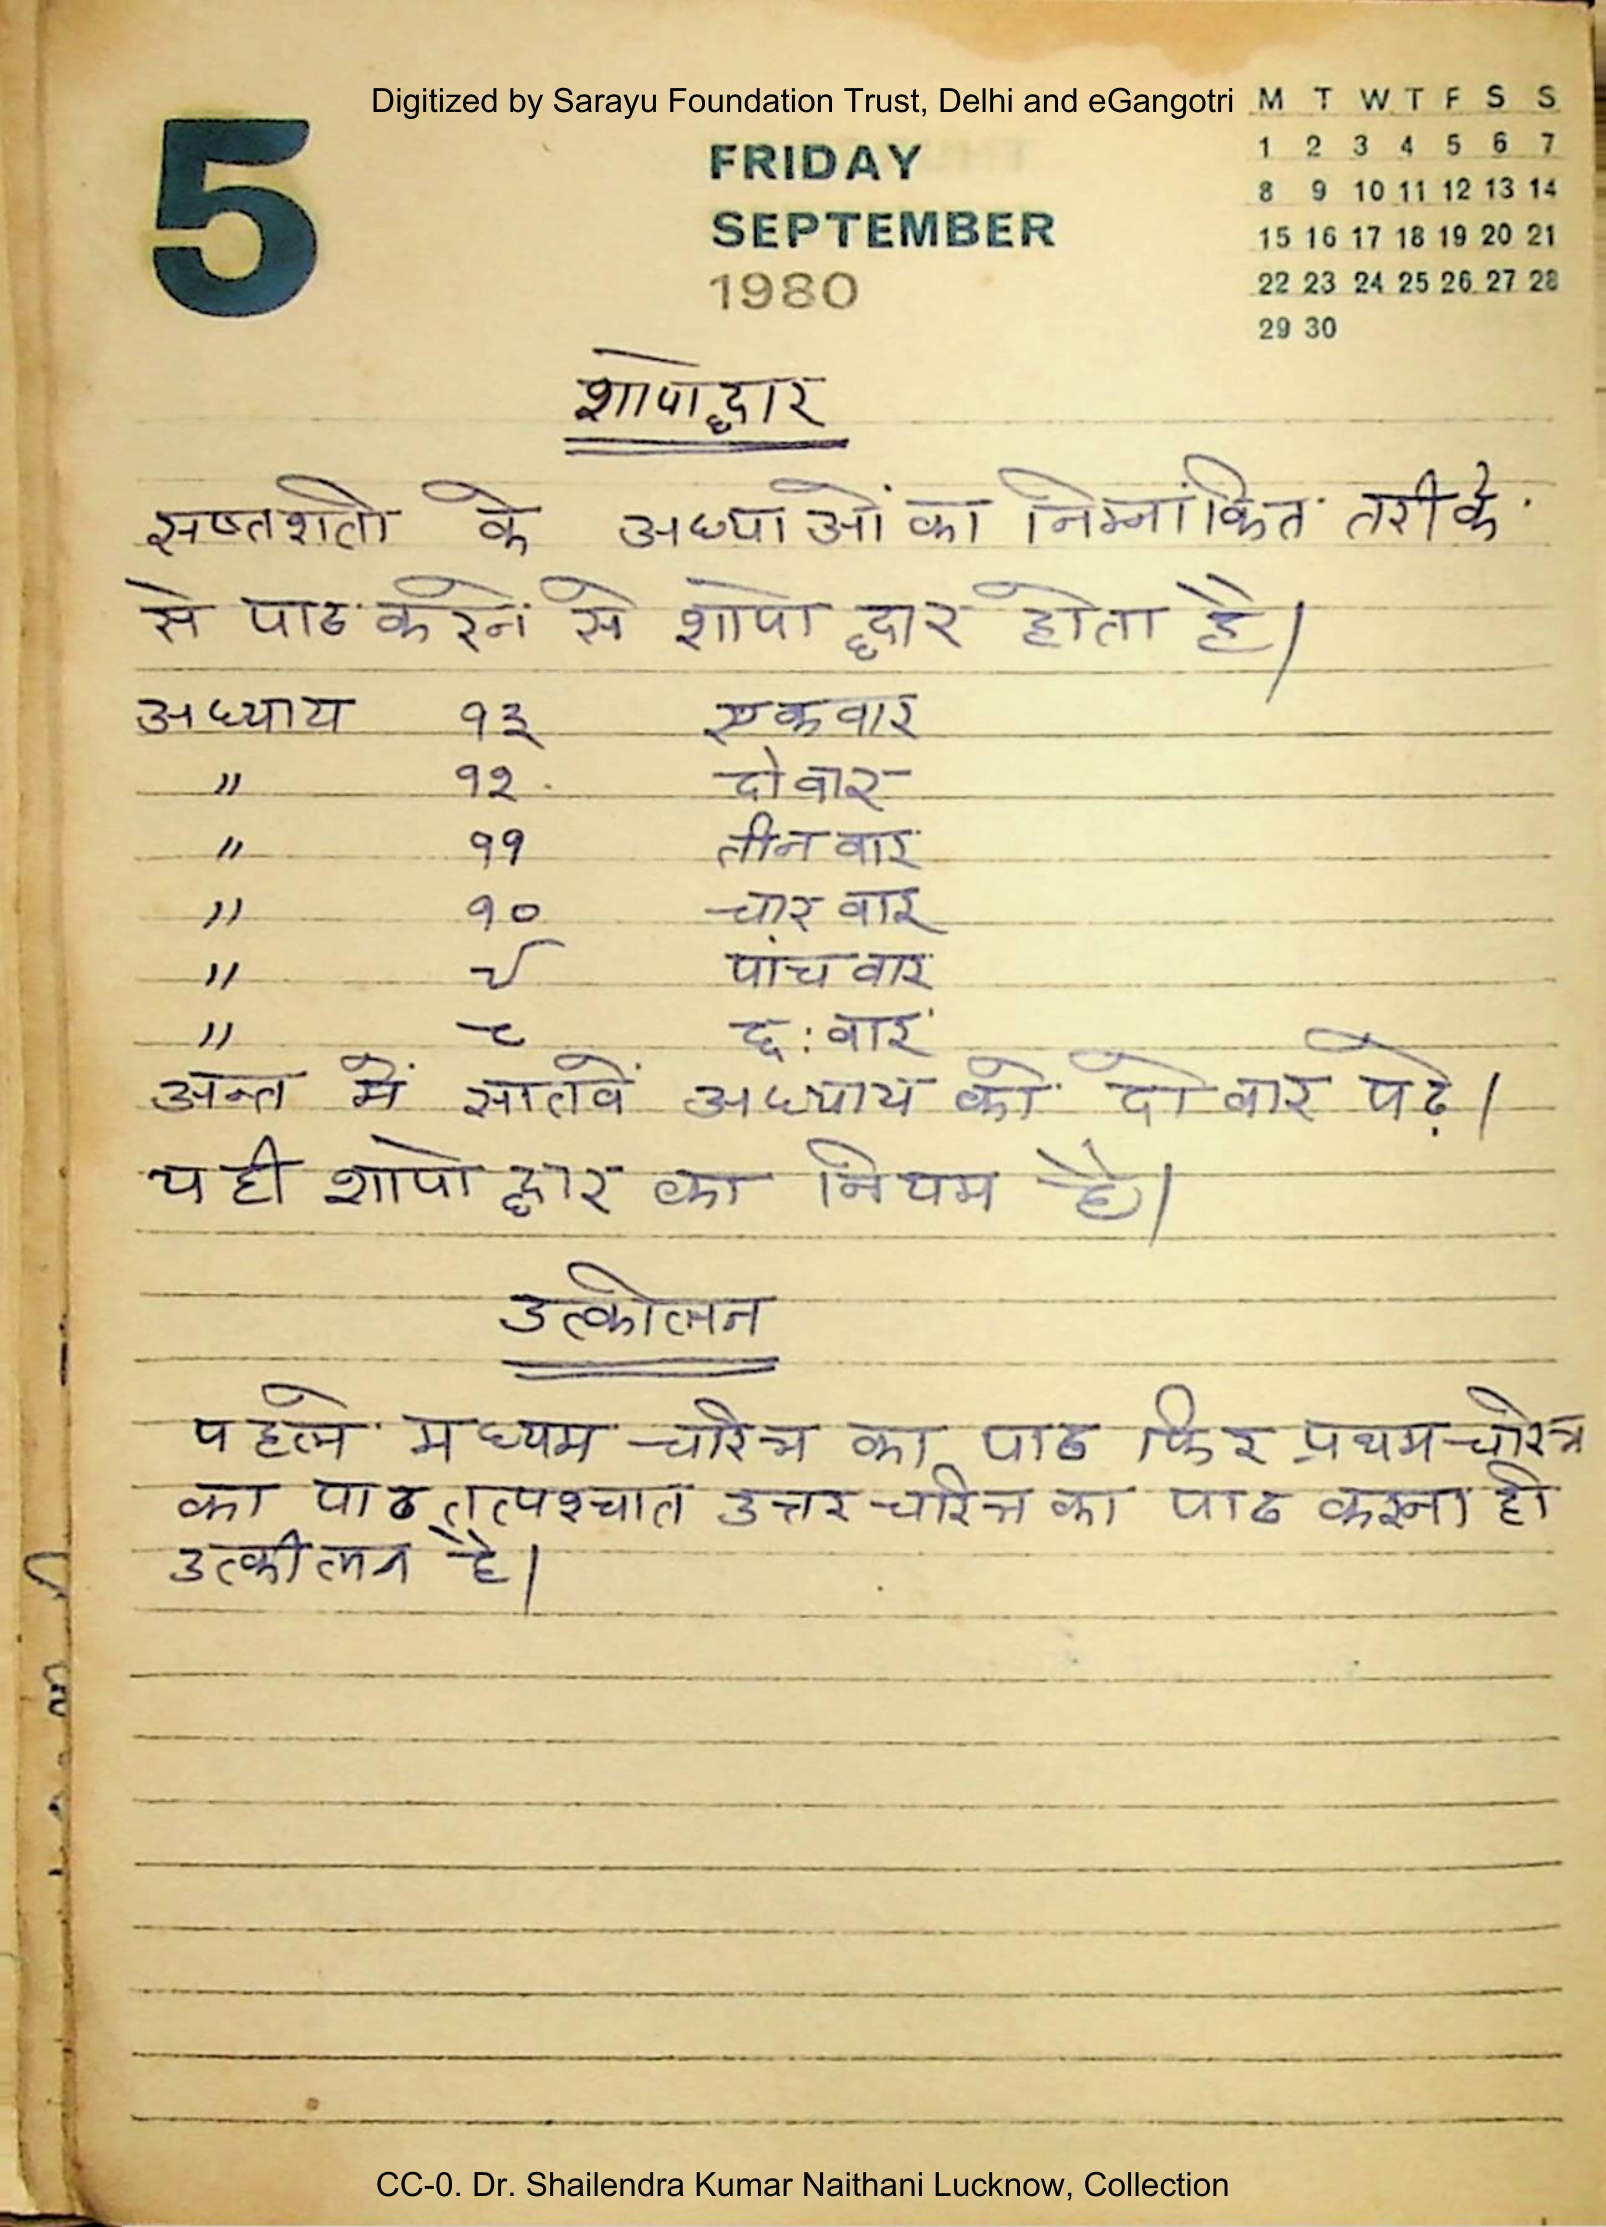 Digitized by Sarayu Foundation Trust, Delhi and eGangotri
5
FRIDAY
SEPTEMBER
1980
M T W T F S S
1 2 3 4 5 6 7
8 9 10 11 12 13 14
15 16 17 18 19 20 21
22 23 24 25 26 27 28
29 30
शापोद्धार
सप्तशती के अध्याओं का निम्नांकित तरीके
से पाठ करने से शापो द्धार होता है।
अध्याय १३ एकवार
" १२ दो वार
" ११ तीन वार
" १० चार वार
" ९ पांच वार
" ८ छ: वार
अन्त में सातवें अध्याय को दो वार पढ़े।
यही शापो द्धार का नियम है।
उत्कीलन
पहले मध्यम चरित्र का पाठ फिर प्रथम चरित्र
का पाठ तत्पश्चात उत्तर चरित्र का पाठ करना ही
उत्कीलन है।
CC-0. Dr. Shailendra Kumar Naithani Lucknow, Collection